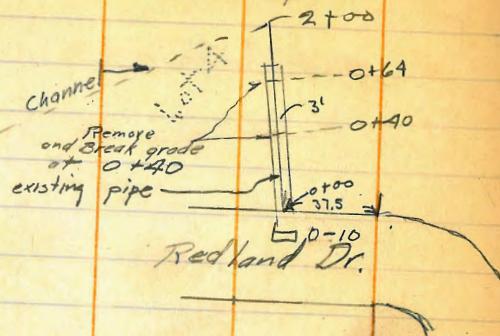 2+00
Channel
Lot A
0+64
3'
0+40
Remove
and Break grade
at 0+40
existing pipe
0+00
37.5
0-10
Redland Dr.